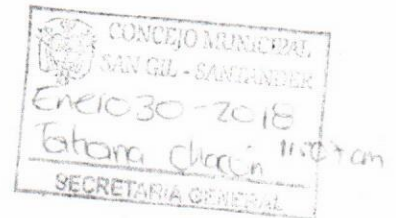 CONCEJO MUNICIPAL
SAN GIL - SANTANDER
Enero 30 - 2018
Tatiana Chacón 11:07 am
SECRETARIA GENERAL